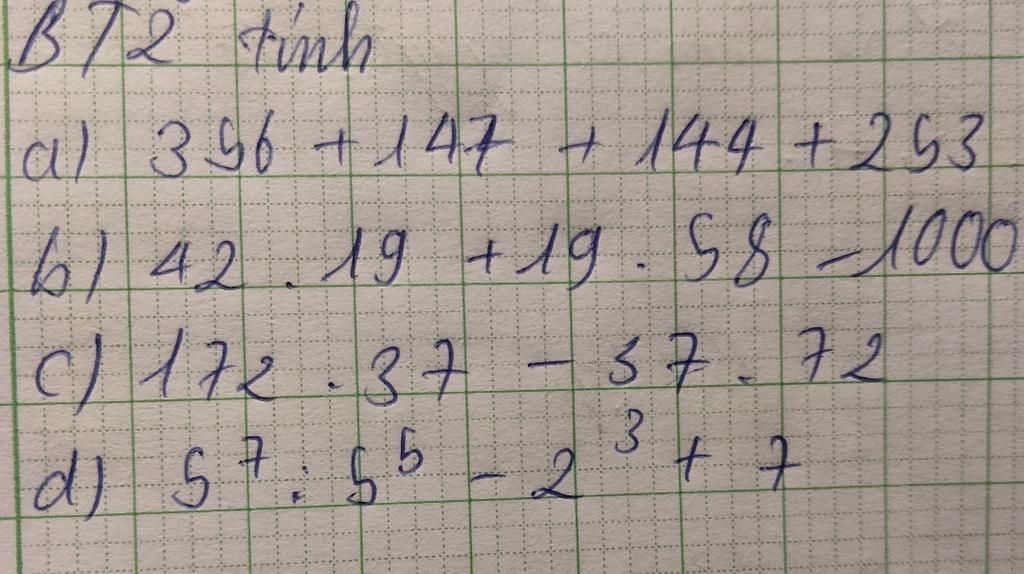 BT2 tính
a) 356 + 147 + 144 + 253
b) 42 . 19 + 19 . 58 - 1000
c) 172 . 37 - 37 . 72
d) 5⁷ : 5⁵ - 2³ + 7